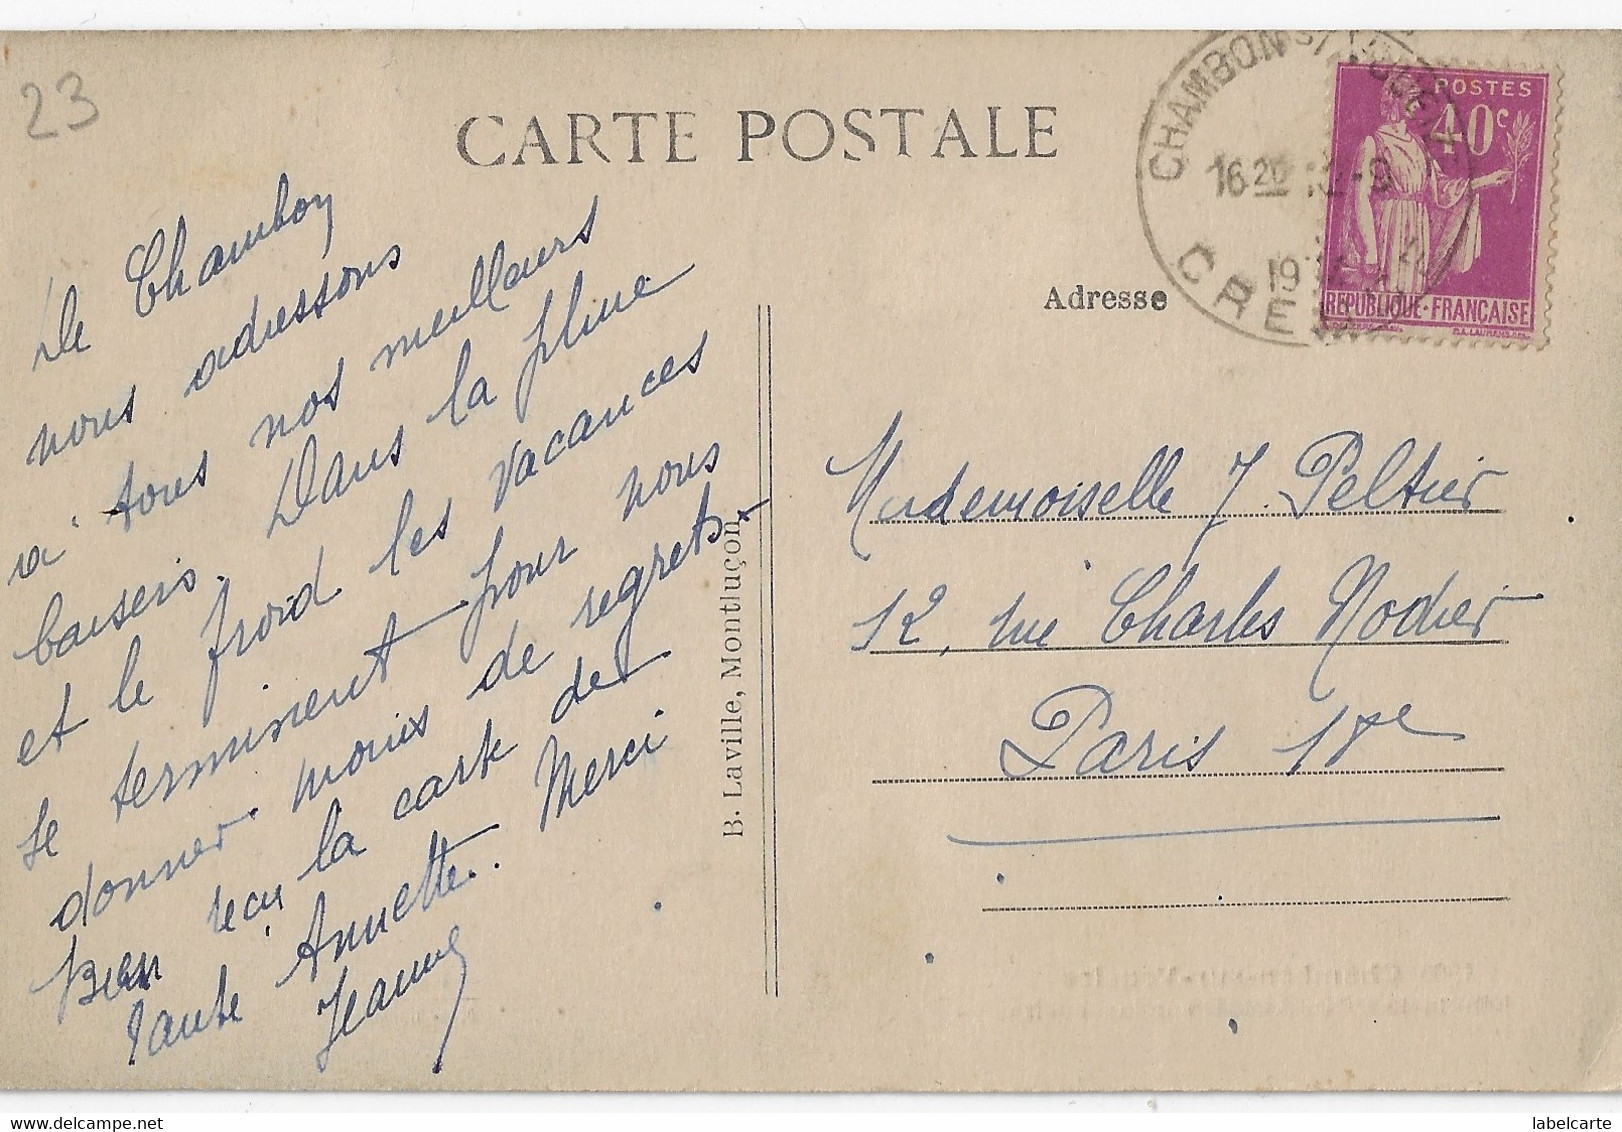 23
CARTE POSTALE
De Chambon
nous adressons
à tous nos meilleurs
baisers. Dans la pluie
et le froid les vacances
se terminent pour nous
donner moins de regrets.
Bien reçu la carte de
Tante Annette. Merci
Jeanne
B. Laville, Montluçon
CHAMBON
16 20
19
CREUSE
POSTES
40c
REPUBLIQUE·FRANÇAISE
Adresse
Mademoiselle J. Peltier
12, rue Charles Nodier
Paris 18e
labelcarte